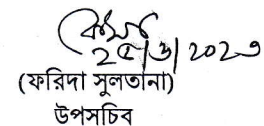 ২৫/৬/২০২৩
(ফরিদা সুলতানা)
উপসচিব